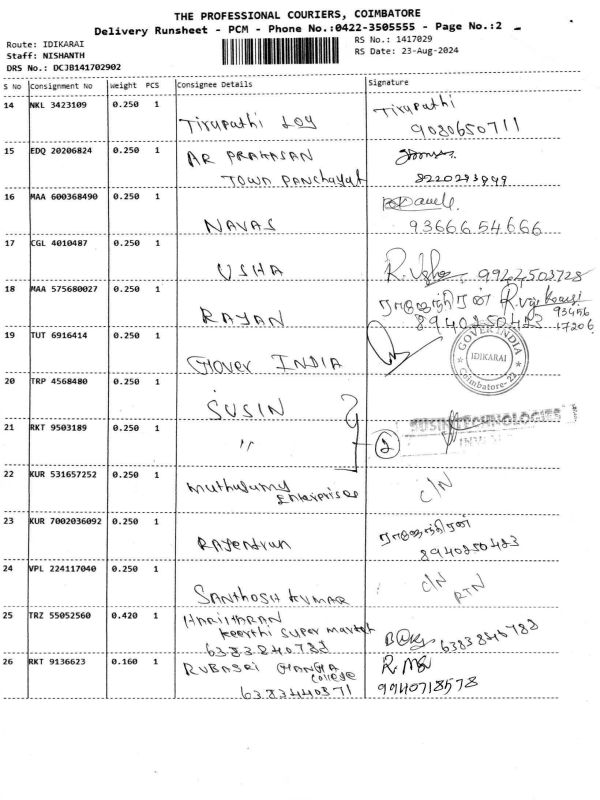 THE PROFESSIONAL COURIERS, COIMBATORE
Delivery Runsheet - PCM - Phone No.:0422-3505555 - Page No.:2
Route: IDIKARAI
RS No.: 1417029
Staff: NISHANTH
RS Date: 23-Aug-2024
DRS No.: DCJB141702902
S No Consignment No Weight PCS Consignee Details Signature
14 NKL 3423109 0.250 1
Tirupathi
Tirupathi Loy
9080650711
15 EDQ 20206824 0.250 1
AR PRAKASAN
Town Panchayat
16 MAA 600368490 0.250 1
NAVAS
93666 54666
17 CGL 4010487 0.250 1
USHA
R. Usha 9944503728
18 MAA 575680027 0.250 1
ராஜேந்திரன்
RAYAN
8940850483
93456
17206
19 TUT 6916414 0.250 1
Glover INDIA
GLOVER INDIA
IDIKARAI
Coimbatore-22
20 TRP 4568480 0.250 1
SUSIN
21 RKT 9503189 0.250 1
"
2
SUSIN TECHNOLOGIES
22 KUR 531657252 0.250 1
Muthusamy
Enterprises
C/N
23 KUR 7002036092 0.250 1
Rajendran
ராஜேந்திரன்
8940850483
24 VPL 224117040 0.250 1
SANTHOSH KUMAR
C/N
RTN
25 TRZ 55052560 0.420 1
HARIHARAN
Keerthi Super market
6383840782
6383840782
26 RKT 9136623 0.160 1
RUBASRI GANGA
College
6383440371
9940718578